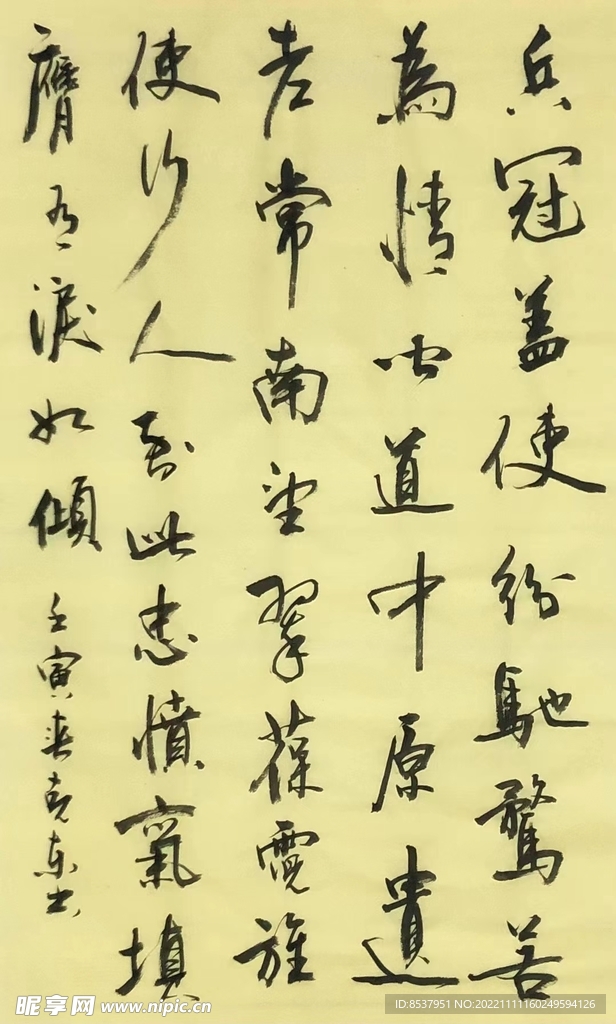 兵冠盖使紛馳騖若
為情聞道中原遺
老常南望翠葆霓旌
使行人到此忠憤氣填
膺有淚如傾
壬寅春克東书
昵享网 www.nipic.cn
ID:8537951 NO:20221111160249594126